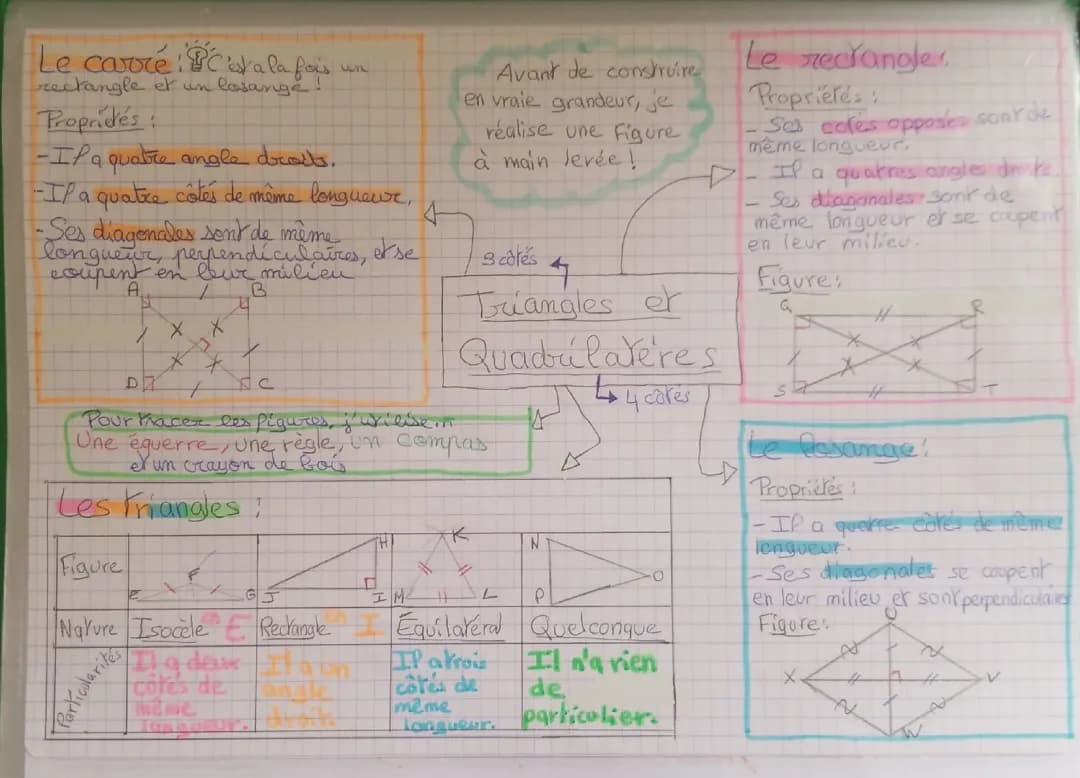 Le carré : C'est a la fois un
rectangle et un losange !
Propriétés :
- Il a quatre angle droits.
- Il a quatre côtés de même longueur.
- Ses diagonales sont de même
longueur, perpendiculaires, et se
coupent en leur milieu
A B
D C
Avant de construire
en vraie grandeur, je
réalise une figure
à main levée !
Le rectangle :
Propriétés :
- Ses cotés opposés sont de
même longueur.
- Il a quatres angles droits.
- Ses diagonales sont de
même longueur et se coupent
en leur milieu.
Figure :
Q R
S T
3 côtés
Triangles et
Quadrilatères
4 côtés
Pour tracer ces figures, j'utilise :
Une équerre, une règle, un compas
et un crayon de bois
Le losange :
Propriétés :
- Il a quatre côtés de même
longueur.
- Ses diagonales se coupent
en leur milieu et sont perpendiculaires
Figure :
U
X V
W
Les triangles :
Figure
E F G
H J I
K M L
N O P
Nature Isocèle en E Rectangle en I Équilatéral Quelconque
Particularités
Il a deux
côtés de
même
longueur.
Il a un
angle
droit.
Il a trois
côtés de
même
longueur.
Il n'a rien
de
particulier.